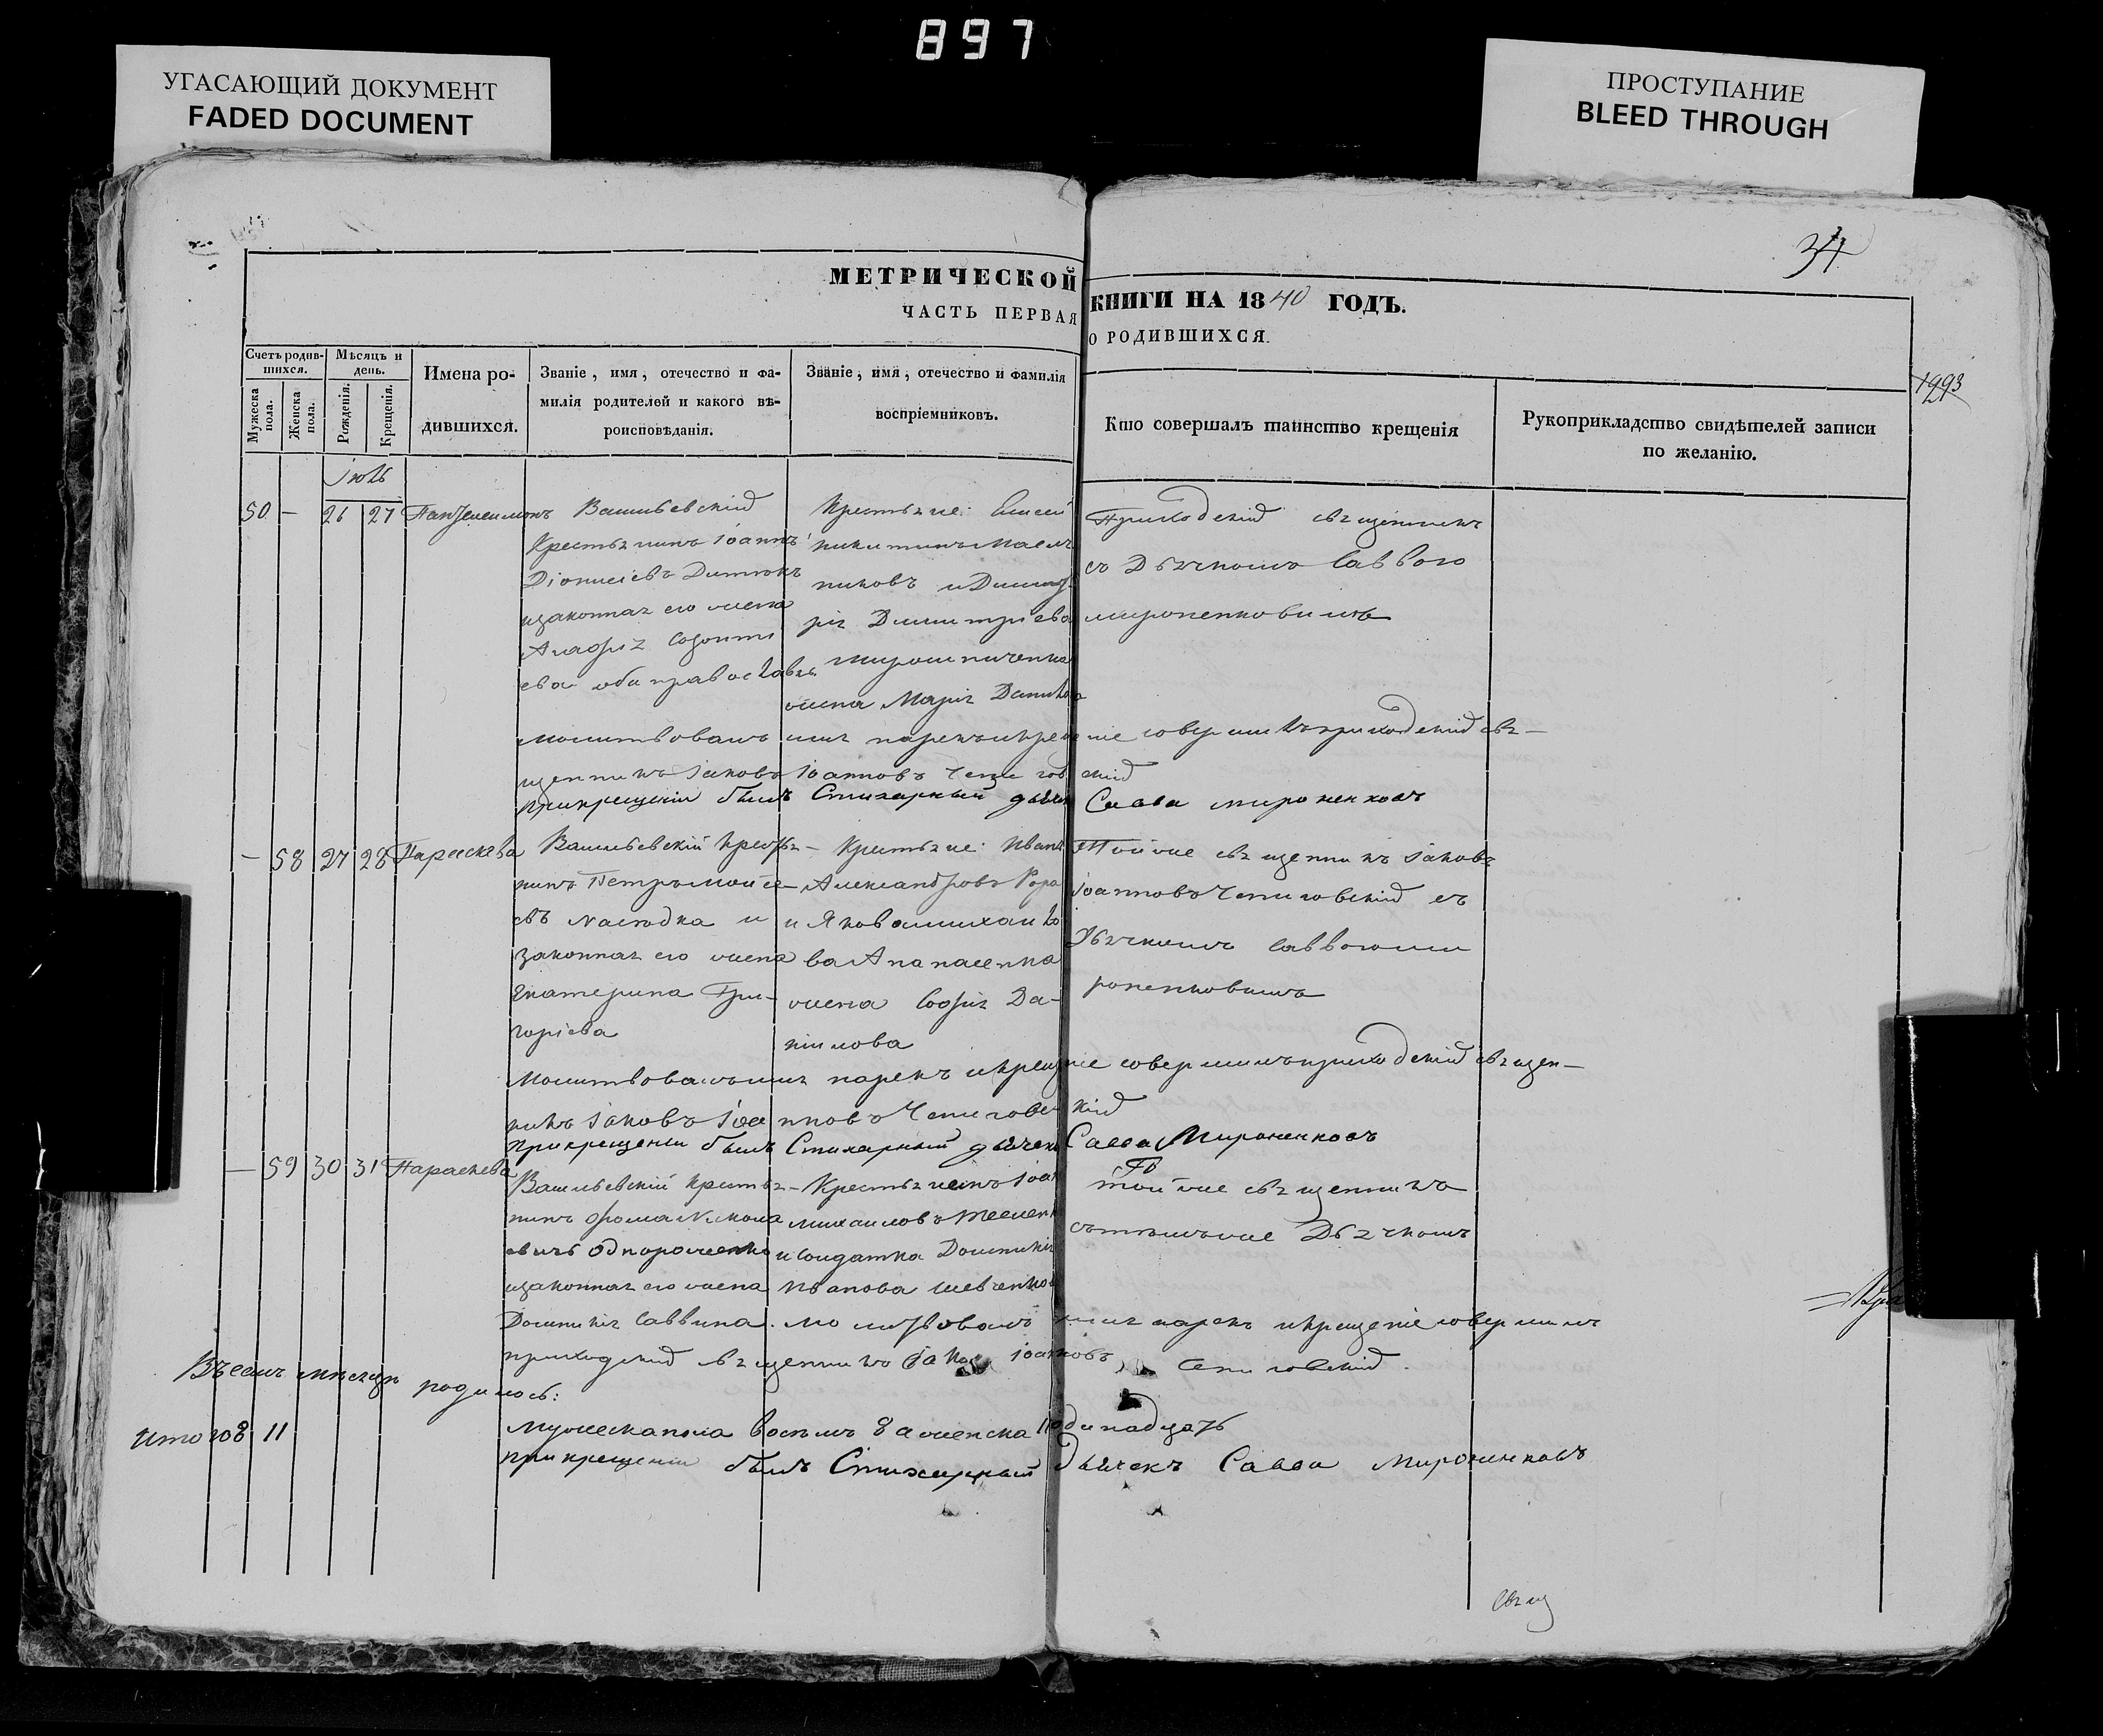 897
УГАСАЮЩИЙ ДОКУМЕНТ
FADED DOCUMENT
ПРОСТУПАНИЕ
BLEED THROUGH
34
МЕТРИЧЕСКОЙ КНИГИ НА 1840 ГОДЪ.
ЧАСТЬ ПЕРВАЯ О РОДИВШИХСЯ.
1293
Счетъ родив-
шихся.
Мужеска пола.
Женска пола.
Мѣсяцъ и
день.
Рожденія.
Крещенія.
Имена ро-
дившихся.
Званіе, имя, отечество и фа-
милія родителей и какого вѣ-
роисповѣданія.
Званіе, имя, отечество и фамилія
воспріемниковъ.
Кто совершалъ таинство крещенія
Рукоприкладство свидѣтелей записи
по желанію.
Іюль
50 — 26 27 Пантелеимонъ
Васильевскій
Крестьянинъ Іоаннъ
Діонисіевъ
изаконная его жена
ева оба православн.
Крестьяне: Елисей
никитинъ
риковъ
рія Димитріева
Мирошниченка
жена Марія Данилова
Приходскій священникъ
съ Дьячкомъ Саввою
мироненковымъ
молитвовалъ имя нарекъ икрещеніе совершилъ приходскій свя-
щенникъ Іаковъ Іоанновъ
прикрещеніи былъ Стихарный дьячекъ Савва мироненковъ
— 58 27 28 Параскева
Васильевскій Крестья-
нинъ Петръ Мойсе-
евъ и
законная его жена
Екатерина Гри-
горіева
Крестьяне: Иванъ
Александровъ
и Якова михайло
ва Апанасенка
жена Софія Да-
ніилова
Тойже священникъ Іаковъ
Іоанновъ съ
Дьячкомъ Саввоюми
роненковымъ
Молитвовалъ имя нарекъ икрещеніе совершилъ приходскій священ-
никъ Іаковъ Іоанновъ
прикрещеніи былъ Стихарный дьячекъ Савва Мироненковъ
— 59 30 31 Параскева
Васильевскій Крестья-
нинъ Фома Никола
евичъ
изаконная его жена
Домникія Саввина.
Крестьянинъ
михаиловъ
и солдатка Домникія
Иванова шевченкова
Тойже священникъ
стѣмъже Дьячкомъ
молитвовалъ имя нарекъ икрещеніе совершилъ
приходскій священникъ Іаковъ Іоанновъ
Въсемъ мѣсяцѣ родилось:
Итого 8 11
мужеска пола восемь 8 аженска 11 одинадцать
прикрещеніи былъ Стихарный дьячекъ Савва Мироненковъ
свящ